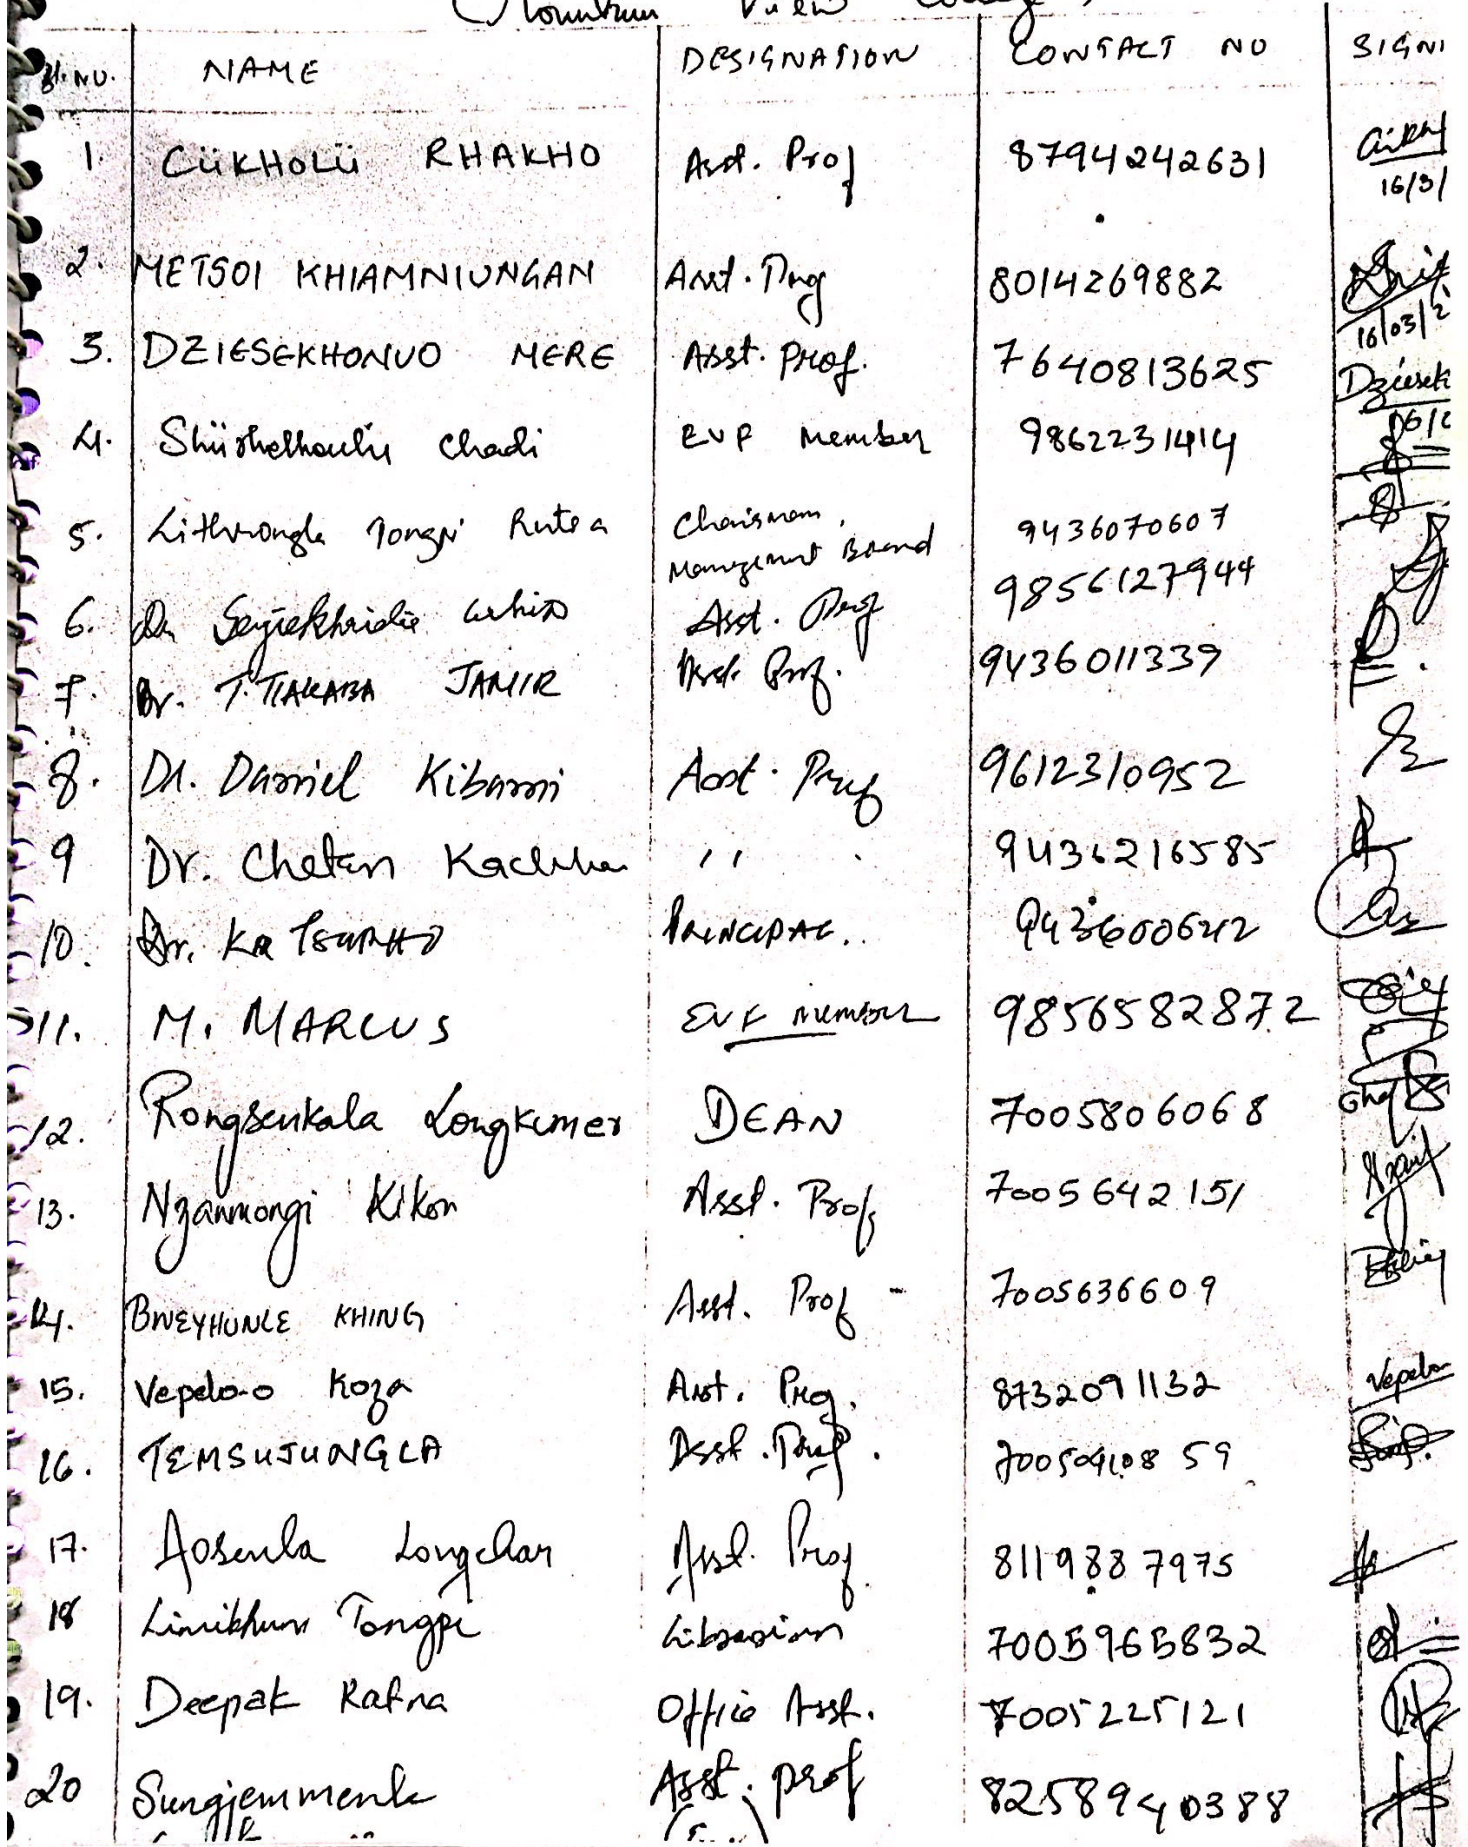 Mountain View College,
Sl. NO. NAME DESIGNATION CONTACT NO SIGN
1. CÜKHOLÜ RHAKHO Asst. Prof 8794242631
16/3/
2. METSOI KHIAMNIUNGAN Asst. Prof 8014269882
16/03/2
3. DZIESEKHONUO MERE Asst. Prof. 7640813625 Dziesek
4. Chadi EVF Member 9862231414
5. Chairman, 9436070607
Management Board
6. Dr Asst. Prof 9856127944
7. Dr. T. TIAKABA JAMIR Asst. Prof. 9436011339
8. Dr. Daniel Kibami Asst. Prof 9612310952
9 Dr. Chetan 〃 9436216585
10. Dr. PRINCIPAL.. 9436000642
11. M. MARCUS EVF MEMBER 9856582872
12. Rongsenkala Longkumer DEAN 7005806068
13. Nzanmongi Kikon Asst. Prof 7005642151
14. BWEYHUNLE KHING Asst. Prof - 7005636609
15. Vepelo-o Koza Asst. Prof. 8732091132 Vepelo
16. TEMSUJUNGLA Asst. Prof. 
17. Aosenla Longchar Asst. Prof 8119887975
18 Librarian 7005965832
19. Deepak Ratna Office Asst. 7005225121
20 Sungjemmenla Asst. prof 8258940388